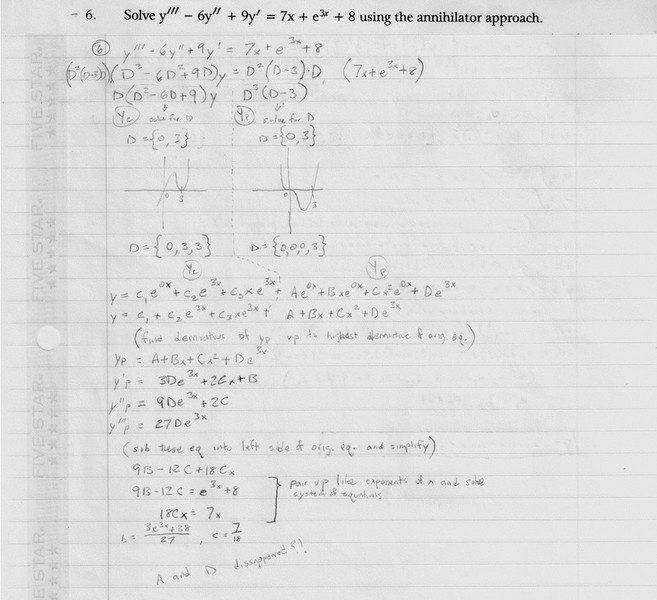 6. Solve y''' − 6y'' + 9y' = 7x + e³ˣ + 8 using the annihilator approach.
⑥ y''' - 6y'' + 9y' = 7x + e³ˣ + 8
(D²(D-3)D)(D³ - 6D² + 9D)y = D²(D-3)·D (7x + e³ˣ + 8)
D(D² - 6D + 9)y D³(D-3)
Yc solve for D Yp solve for D
D = {0, 3} D = {0, 3}
0 3 0 3
D = {0, 3, 3} D = {0,0,0,3}
Yc Yp
y = c₁e⁰ˣ + c₂e³ˣ + c₃xe³ˣ + Ae⁰ˣ + Bxe⁰ˣ + Cx²e⁰ˣ + De³ˣ
y = c₁ + c₂e³ˣ + c₃xe³ˣ + A + Bx + Cx² + De³ˣ
(find derivatives of yp up to highest derivative of orig. eq.)
yp = A + Bx + Cx² + De³ˣ
y'p = 3De³ˣ + 2Cx + B
y''p = 9De³ˣ + 2C
y'''p = 27De³ˣ
(sub these eq into left side of orig. eq. and simplify)
9B - 12C + 18Cx
9B - 12C = e³ˣ + 8
18Cx = 7x
pair up like exponents of x and solve
system of equations
b = (3e³ˣ + 38)/27 , c = 7/18
A and D dissappeared?!
FIVE STAR.
FIVE STAR.
FIVE STAR.
E STAR.